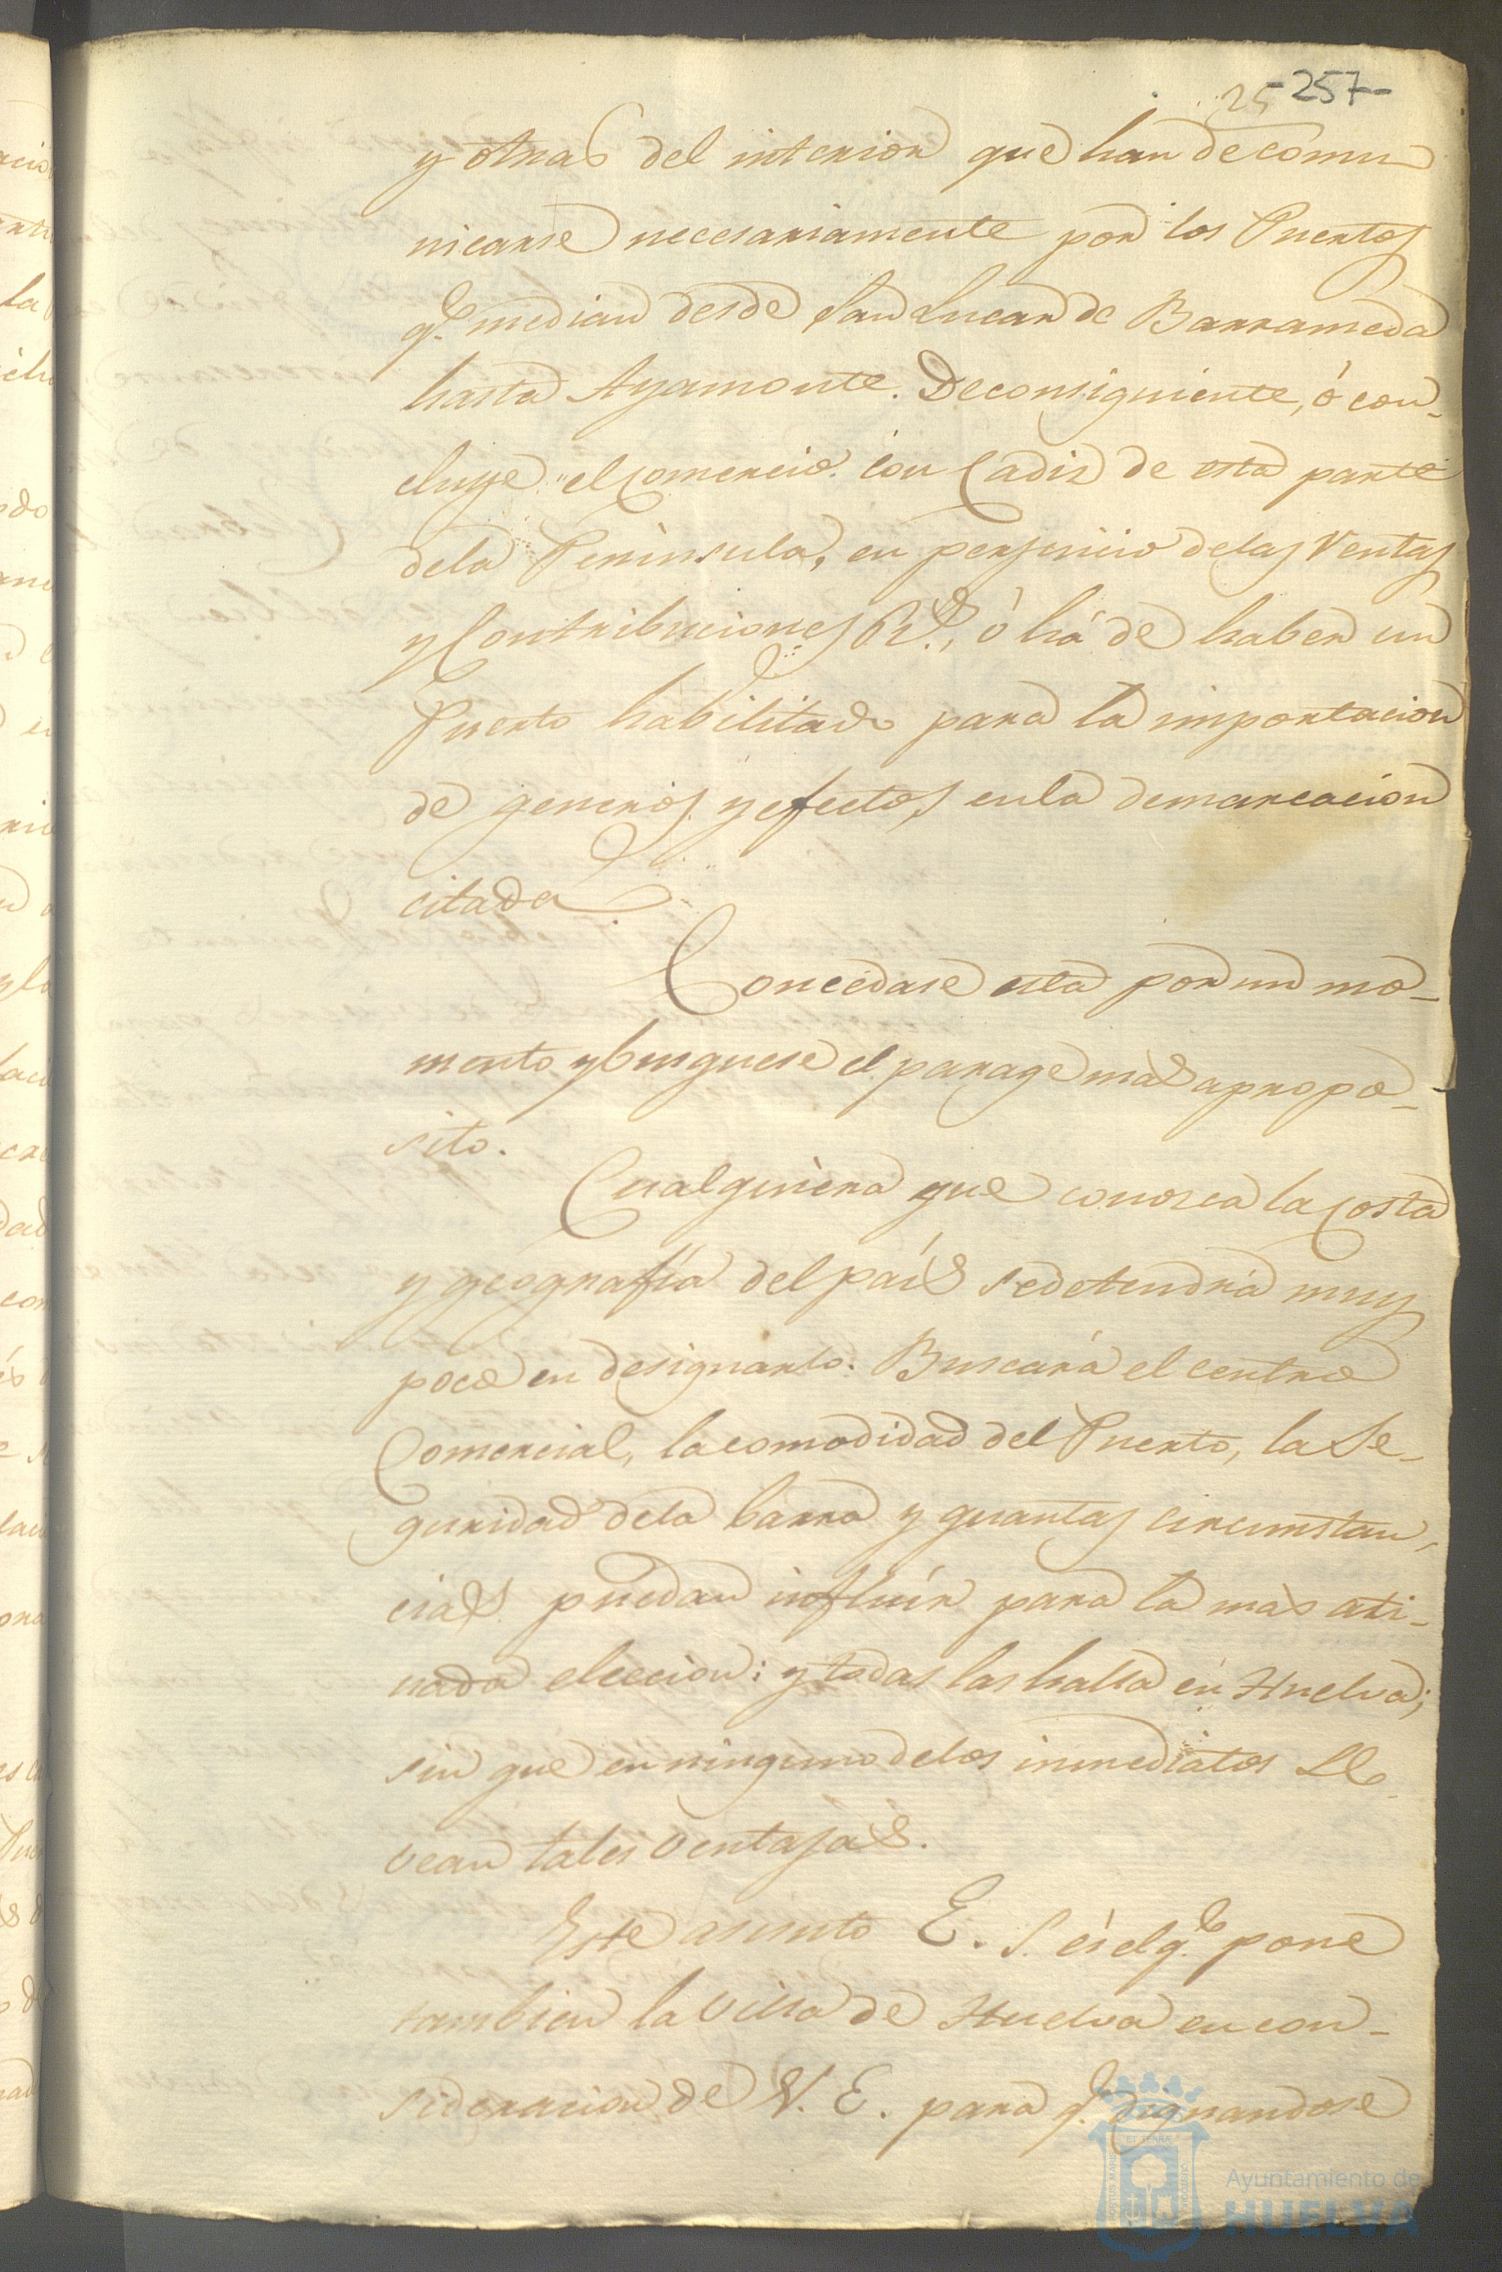 25 -257-
y otras del interior que han de comu
nicarse necesariamente por los Puertos
q.e median desde San Lucar de Barrameda
hasta Ayamonte. De consiguiente, ó con-
cluye el Comercio con Cadiz de esta parte
dela Peninsula, en perjuicio delas Ventas
y Contribuciones R.s, ó há de haber un
Puerto habilitado para la importacion
de generos y efectos, en la demarcacion
citada
Concedase esta por un mo-
mento y busquese el parage mas apropo-
sito.
Cualquiera que conosca la Costa
y geografía del país se detendrá muy
poco en designarlo. Buscará el centro
Comercial, la comodidad del Puerto, la Se-
guridad dela barra y quantas circunstan-
cias puedan influír para la mas ati-
nada eleccion: y todas las halla en Huelva;
sin que en ninguno delos inmediatos se
vean tales ventajas.
Este asunto E. S. és el q.e pone
tambien la Villa de Huelva en con-
sideracion de V. E. para q.e dignandose
Ayuntamiento de
HUELVA